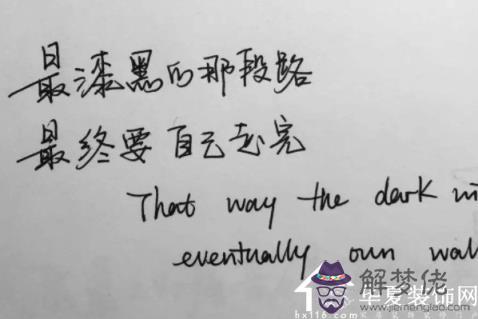 最漆黑的那段路
最终要自己走完
That way the dark
eventually own
解梦佬
www.jiemenglao.com
华夏装饰网